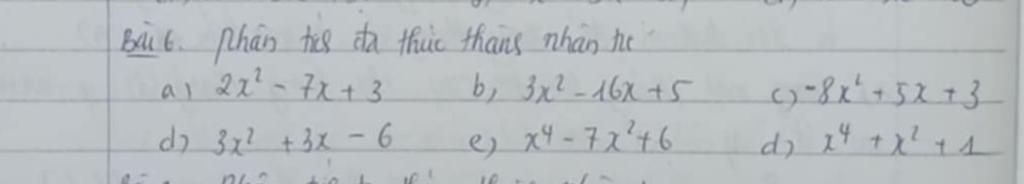 Bài 6. Phân tích đa thức thành nhân tử
a) 2x² - 7x + 3 b) 3x² - 16x + 5 c) -8x² + 5x + 3
d) 3x² + 3x - 6 e) x⁴ - 7x² + 6 d) x⁴ + x² + 1